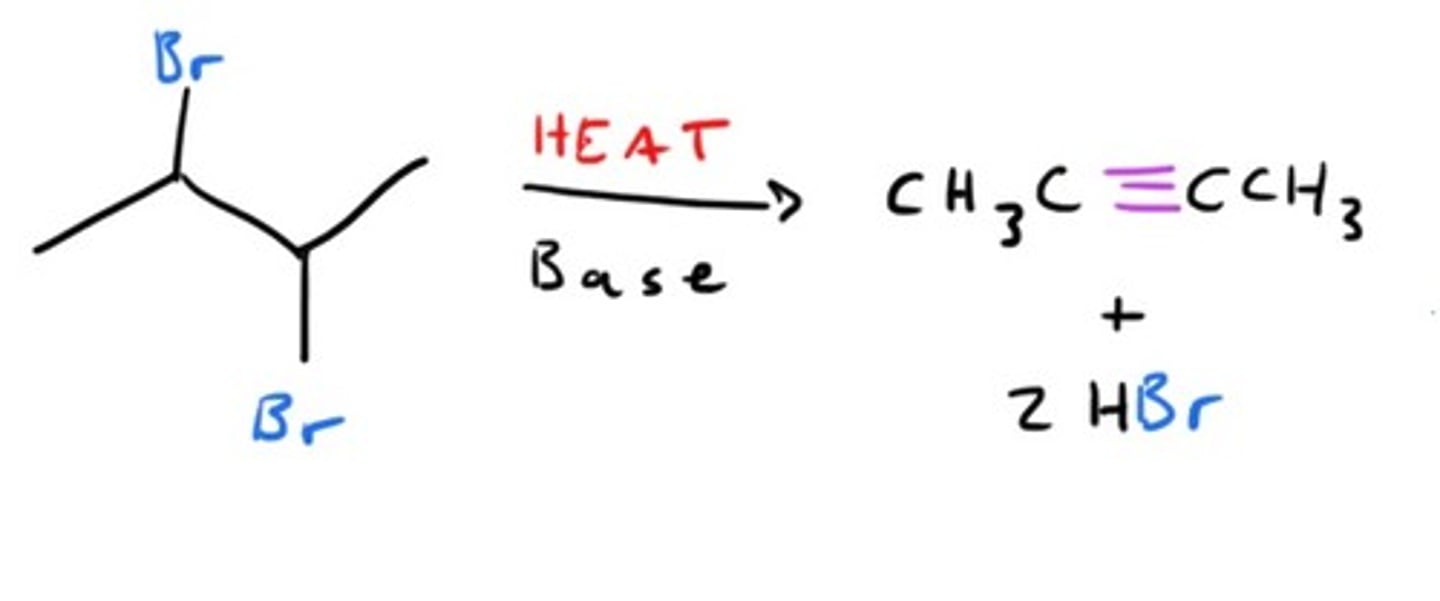 Br
HEAT
Base
CH3C≡CCH3
+
2 HBr
Br